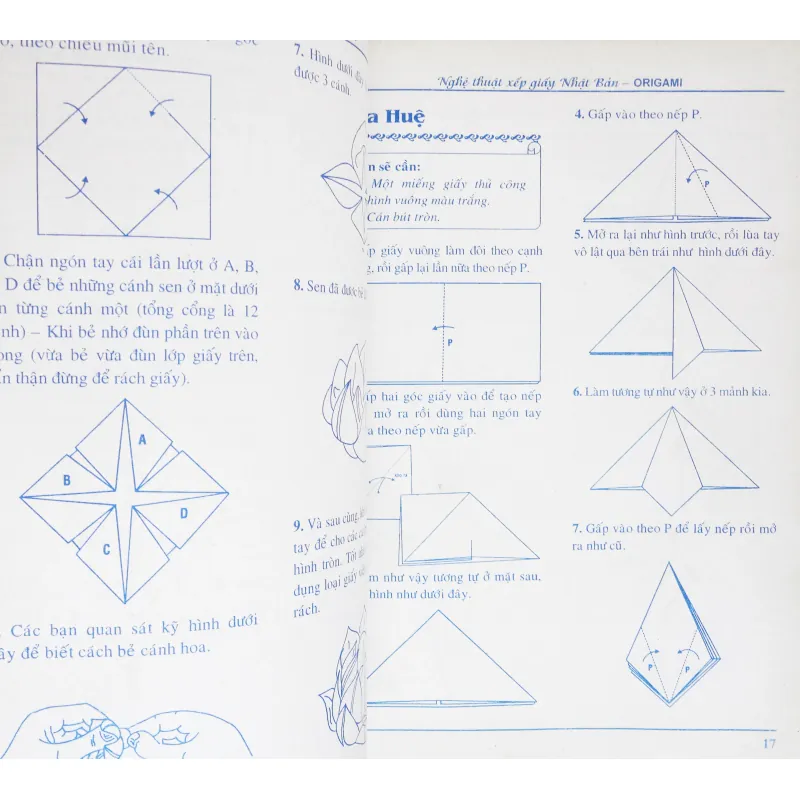 theo chiều mũi tên.
góc
Chận ngón tay cái lần lượt ở A, B,
D để bẻ những cánh sen ở mặt dưới
từng cánh một (tổng cổng là 12
– Khi bẻ nhớ đùn phần trên vào
(vừa bẻ vừa đùn lớp giấy trên,
thận đừng để rách giấy).
A
B
D
C
Các bạn quan sát kỹ hình dưới
để biết cách bẻ cánh hoa.
7. Hình dưới
được 3 cánh.
8. Sen đã được
9. Và sau cùng,
tay để cho các
hình tròn. Tốt
dụng loại giấy
rách.
Nghệ thuật xếp giấy Nhật Bản – ORIGAMI
Huệ
sẽ cần:
Một miếng giấy thủ công
hình vuông màu trắng.
Cần bút tròn.
giấy vuông làm đôi theo cạnh
rồi gấp lại lần nữa theo nếp P.
P
hai góc giấy vào để tạo nếp
mở ra rồi dùng hai ngón tay
theo nếp vừa gấp.
như vậy tương tự ở mặt sau,
hình như dưới đây.
4. Gấp vào theo nếp P.
P
5. Mở ra lại như hình trước, rồi lùa tay
vô lật qua bên trái như hình dưới đây.
6. Làm tương tự như vậy ở 3 mảnh kia.
7. Gấp vào theo P để lấy nếp rồi mở
ra như cũ.
P P
17